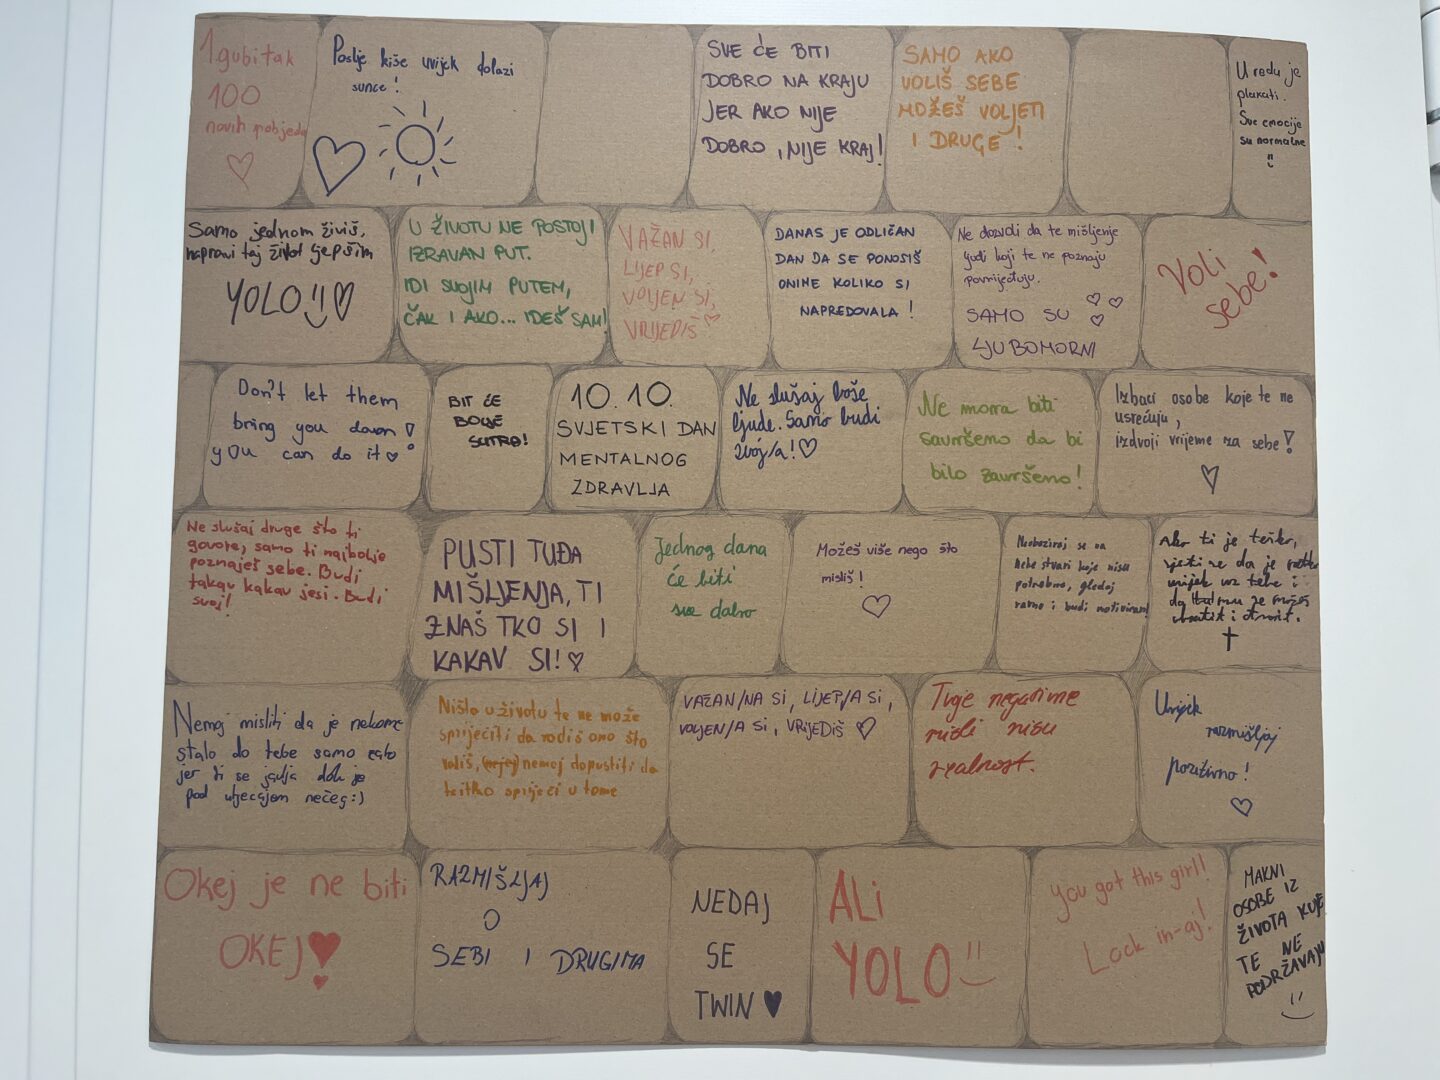 1 gubitak
100
novih pobjeda
Poslje kiše uvijek dolazi
sunce!
SVE ĆE BITI
DOBRO NA KRAJU
JER AKO NIJE
DOBRO, NIJE KRAJ!
SAMO AKO
VOLIŠ SEBE
MOŽEŠ VOLJETI
I DRUGE!
U redu je
plakati.
Sve emocije
su normalne
Samo jednom živiš,
napravi taj život ljepšim
YOLO!!
U ŽIVOTU NE POSTOJI
IZRAVAN PUT.
IDI SVOJIM PUTEM,
ČAK I AKO... IDEŠ SAM!
VAŽAN SI,
LIJEP SI,
VOLJEN SI,
VRIJEDIŠ
DANAS JE ODLIČAN
DAN DA SE PONOSIŠ
ONIME KOLIKO SI
NAPREDOVALA!
Ne dozvoli da te mišljenje
ljudi koji te ne poznaju
povrijeđuju.
SAMO SU
LJUBOMORNI
Voli
sebe!
Don't let them
bring you down!
you can do it
BIT ĆE
BOLJE
SUTRA!
10.10.
SVJETSKI DAN
MENTALNOG
ZDRAVLJA
Ne slušaj loše
ljude. Samo budi
svoj/a!
Ne mora biti
savršeno da bi
bilo završeno!
Izbaci osobe koje te ne
usrećuju,
izdvoji vrijeme za sebe!
Ne slušaj druge što ti
govore, samo ti najbolje
poznaješ sebe. Budi
takav kakav jesi. Budi
svoj!
PUSTI TUĐA
MIŠLJENJA, TI
ZNAŠ TKO SI I
KAKAV SI!
Jednog dana
će biti
sve dobro
Možeš više nego što
misliš!
Neobaziraj se na
neke stvari koje nisu
potrebne, gledaj
ravno i budi motiviran!
Ako ti je teško,
sjeti se da je netko
uvijek uz tebe i
da se možeš
obratit i otvorit.
Nemoj misliti da je nekome
stalo do tebe samo zato
jer ti se javlja dok je
pod utjecajem nečeg:)
Ništo u životu te ne može
spriječiti da radiš ono što
voliš, nemoj dopustiti da
te itko spriječi u tome
VAŽAN/NA SI, LIJEP/A SI,
VOLJEN/A SI, VRIJEDIŠ
Tvoje negativne
misli nisu
realnost.
Uvijek
razmišljaj
pozitivno!
Okej je ne biti
OKEJ
RAZMIŠLJAJ
O
SEBI I DRUGIMA
NEDAJ
SE
TWIN
ALI
YOLO
You got this girl!
Lock in-aj!
MAKNI
OSOBE IZ
ŽIVOTA KOJE
TE NE
PODRŽAVAJU